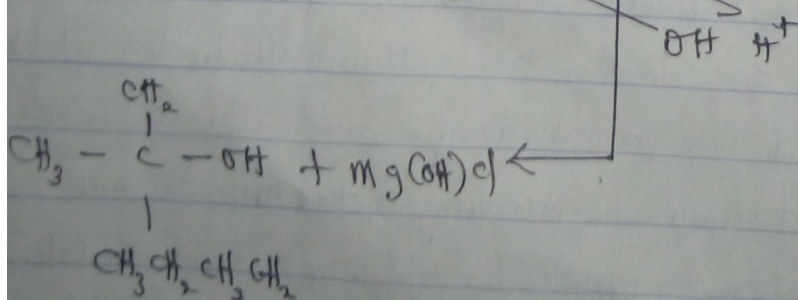 OH H⁺
CH₂
CH₃ – C – OH + Mg(OH)Cl
CH₃CH₂CH₂CH₂